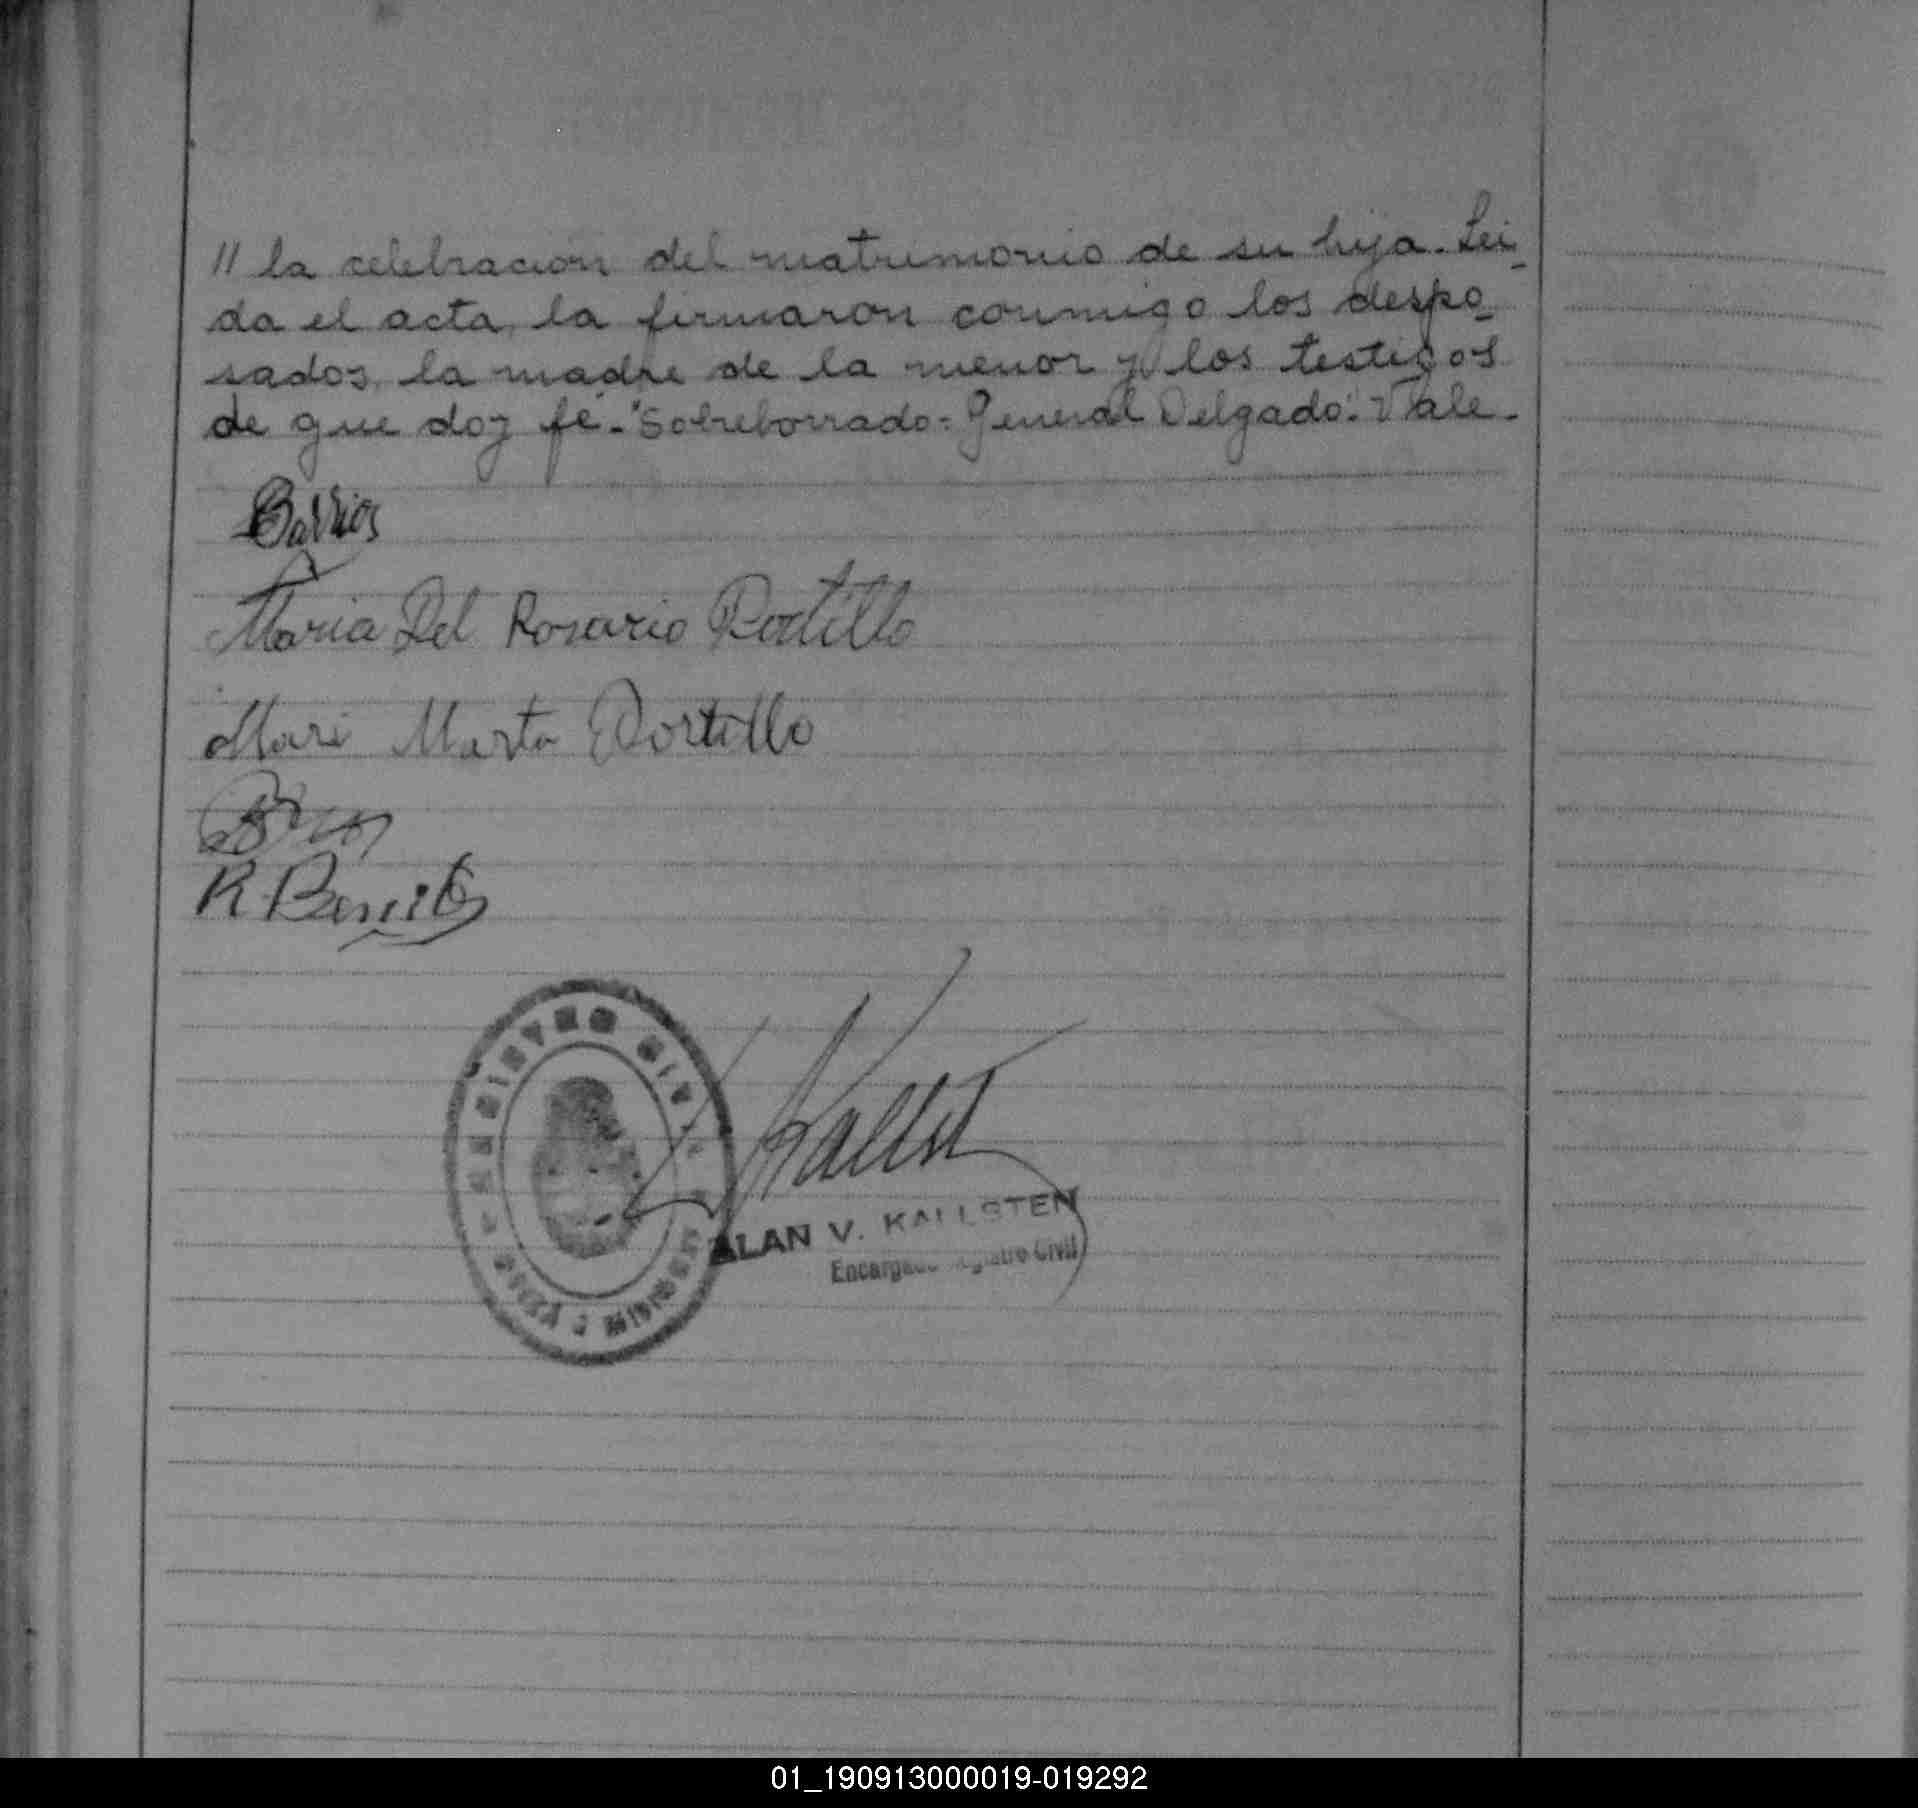 // la celebracion del matrimonio de su hija. Lei_
da el acta, la firmaron conmigo los despo_
sados, la madre de la menor y los testigos
de que doy fé. "Sobreborrado: General Delgado". Vale.
Barrios
Maria Del Rosario Portillo
Mari Marta Portillo
R Benitez
REGISTRO CIVIL
MISIONES
Kallst
ALAN V. KALLSTEN
Encargado Registro Civil
01_190913000019-019292